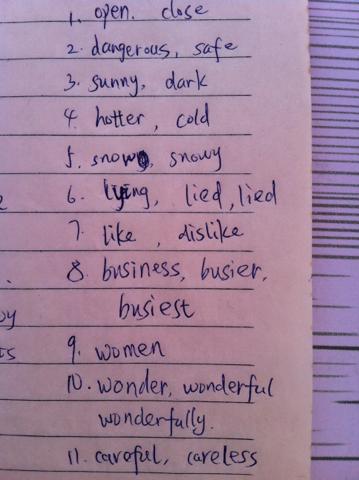 1. open. close
2. dangerous, safe
3. sunny, dark
4. hotter, cold
5. snow, snowy
6. lying, lied, lied
7. like, dislike
8. business, busier,
busiest
9. women
10. wonder, wonderful
wonderfully.
11. careful, careless